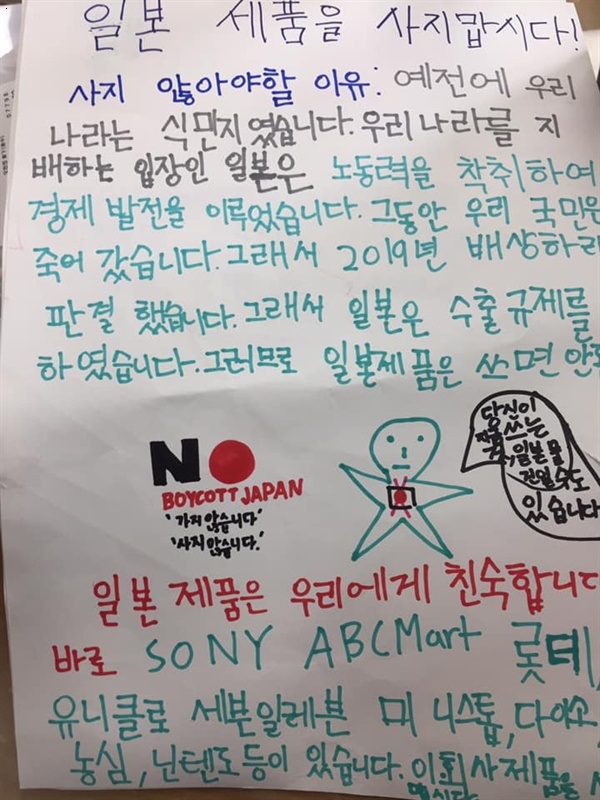 일본 제품을 사지맙시다!
사지 않아야할 이유: 예전에 우리
나라는 식민지였습니다. 우리나라를 지
배하는 입장인 일본은 노동력을 착취하여
경제 발전을 이루었습니다. 그동안 우리 국민은
죽어 갔습니다. 그래서 2019년 배상하라
판결 했습니다. 그래서 일본은 수출규제를
하였습니다. 그러므로 일본제품은 쓰면 안
NO
BOYCOTT JAPAN
'가지 않습니다'
'사지 않습니다.'
당신이
쓰는
일본물
건일수도
있습니다
일본 제품은 우리에게 친숙합니다
바로 SONY ABCMart 롯데,
유니클로 세븐일레븐 미니스톱, 다이소
농심, 닌텐도등이 있습니다. 이회사제품은